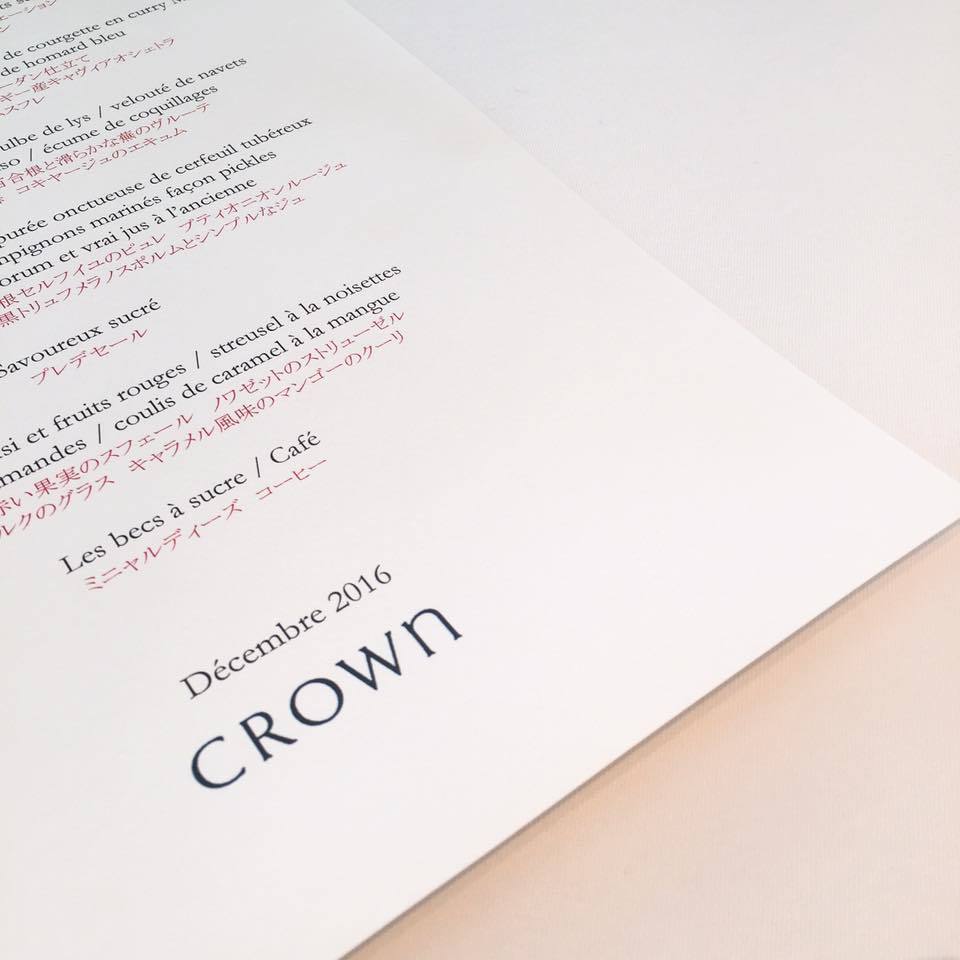 de courgette en curry
de homard bleu
ーダン仕立て
ギー産キャヴィアオシェトラ
スフレ
ulbe de lys / velouté de navets
so / écume de coquillages
百合根と滑らかな蕪のヴルーテ
コキヤージュのエキュム
purée onctueuse de cerfeuil tubéreux
mpignons marinés façon pickles
orum et vrai jus à l'ancienne
根セルフイユのピュレ プティオニオンルージュ
黒トリュフメラノスポルムとシンプルなジュ
Savoureux sucré
プレデセール
si et fruits rouges / streusel à la noisettes
mandes / coulis de caramel à la mangue
赤い果実のスフェール ノワゼットのストリューゼル
ルクのグラス キャラメル風味のマンゴーのクーリ
Les becs à sucre / Café
ミニャルディーズ コーヒー
Décembre 2016
CROWN